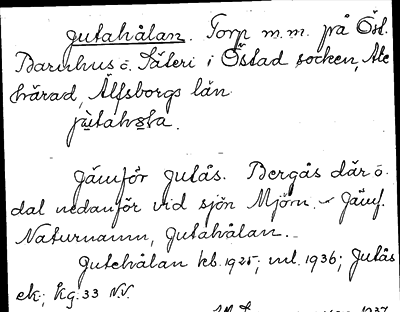 Jutahålan. Torp m.m. på Öst.
Barnhus o. Säteri i Östad socken, Ale
härad, Älfsborgs län
Jämför Jutås. Bergås där o.
dal nedanför vid sjön Mjörn. - Jämf.
Naturnamn, Jutahålan. -
Jutehålan kb. 1925; ml. 1936; Jutås
ek; Kg. 33 N.V.